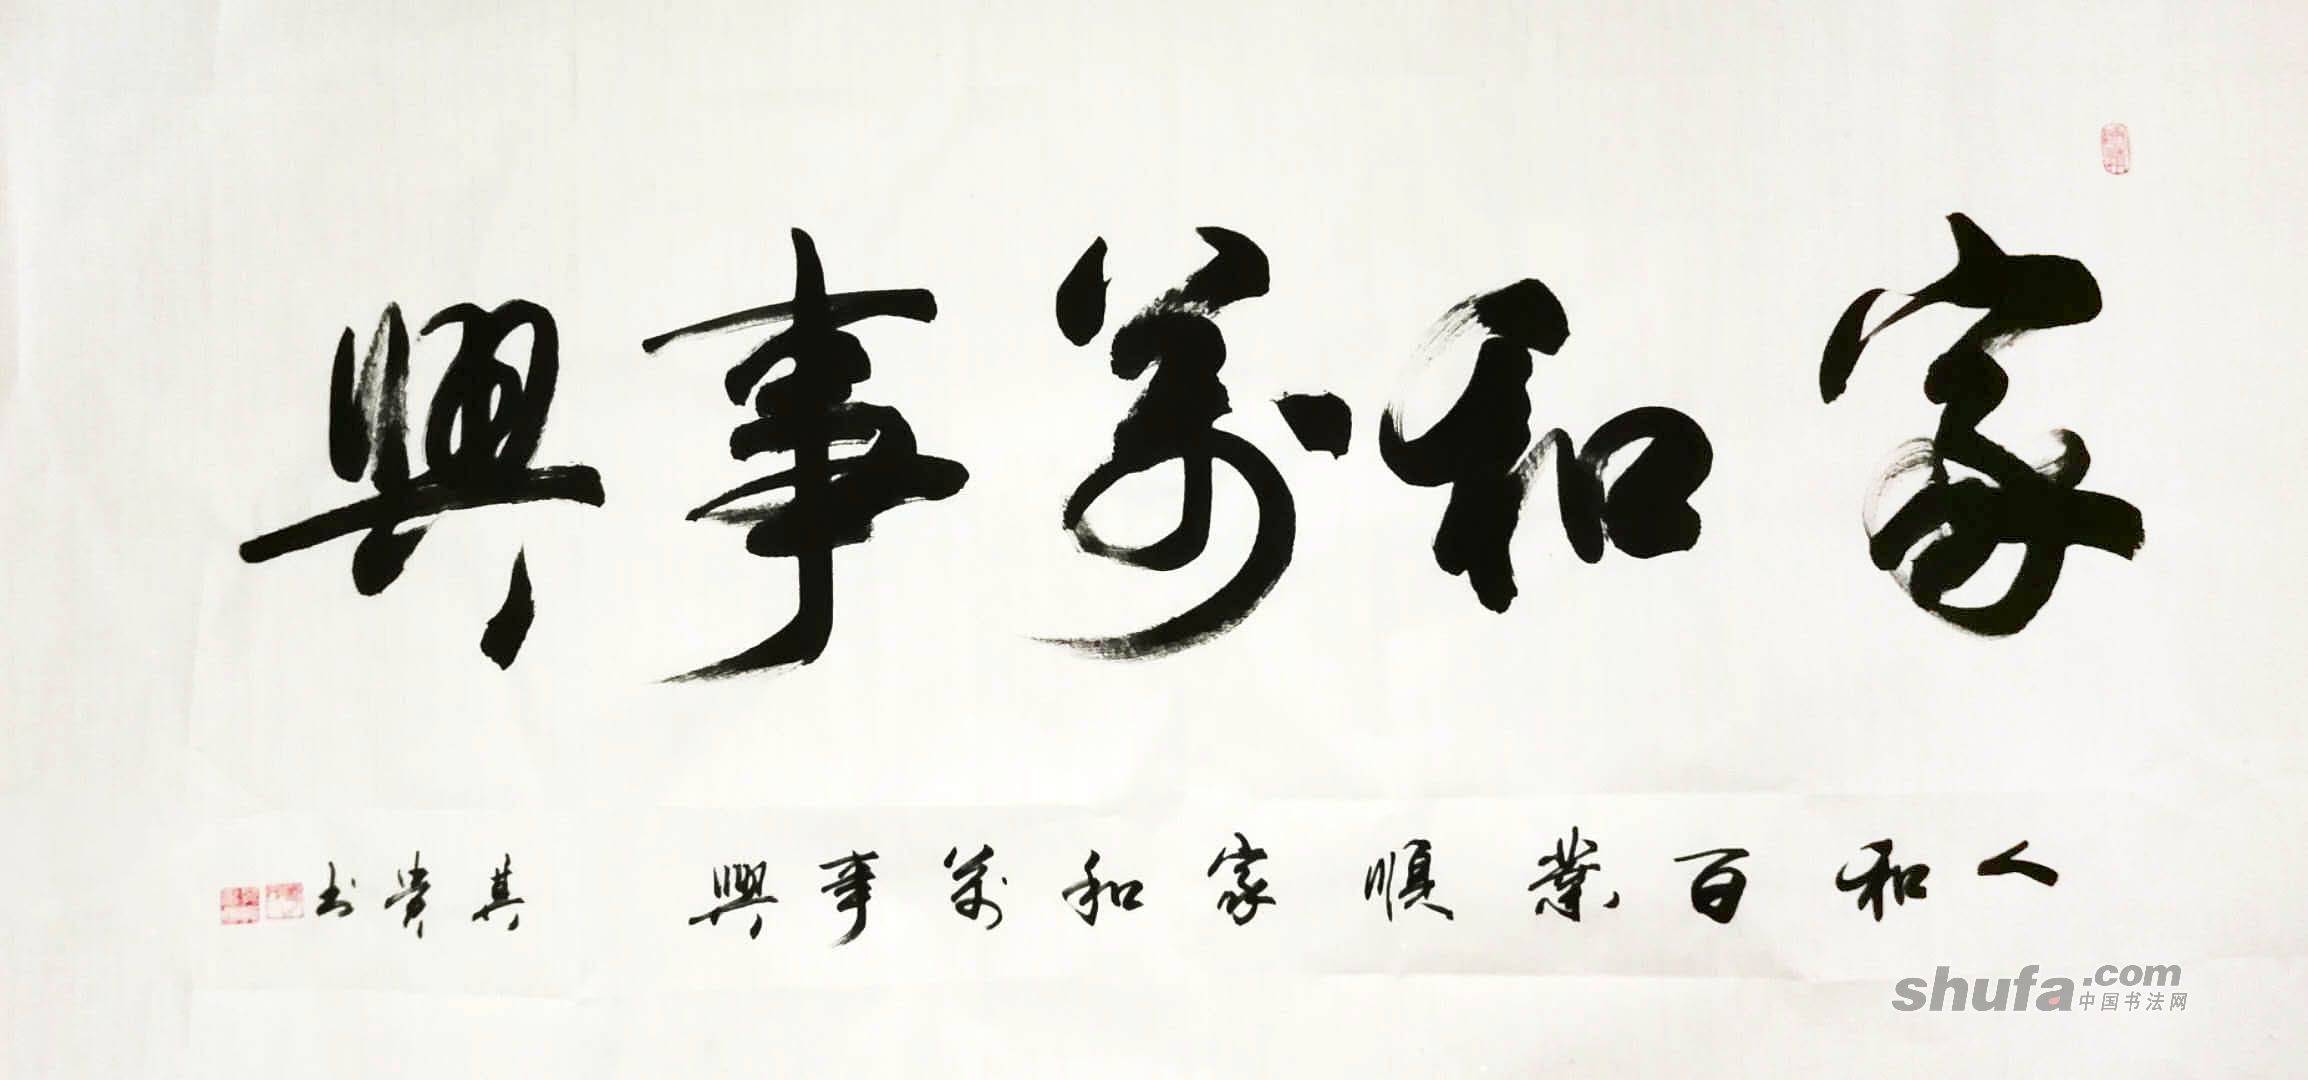 家和萬事興
人和百業順家和萬事興 其贵书
shufa.com
中国书法网